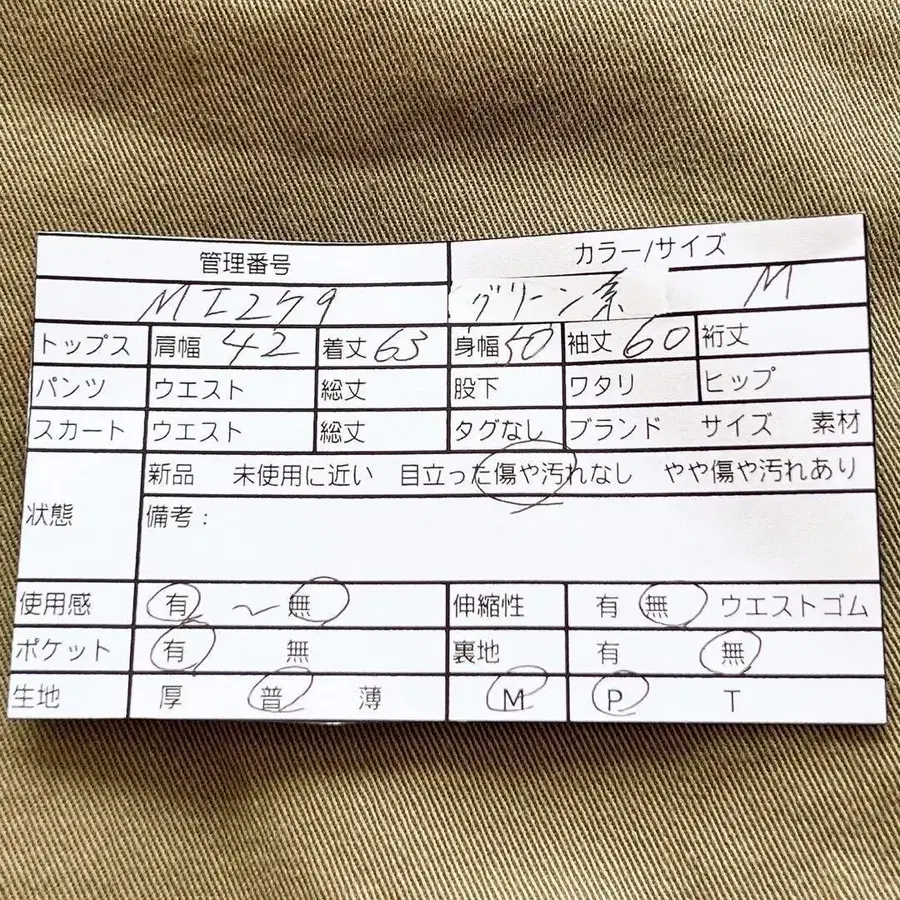 管理番号 カラー/サイズ
MI279 グリーン系 M
トップス 肩幅 42 着丈 63 身幅 50 袖丈 60 裄丈
パンツ ウエスト 総丈 股下 ワタリ ヒップ
スカート ウエスト 総丈 タグなし ブランド サイズ 素材
新品 未使用に近い 目立った傷や汚れなし やや傷や汚れあり
状態 備考:
使用感 有 ~ 無 伸縮性 有 無 ウエストゴム
ポケット 有 無 裏地 有 無
生地 厚 普 薄 M P T